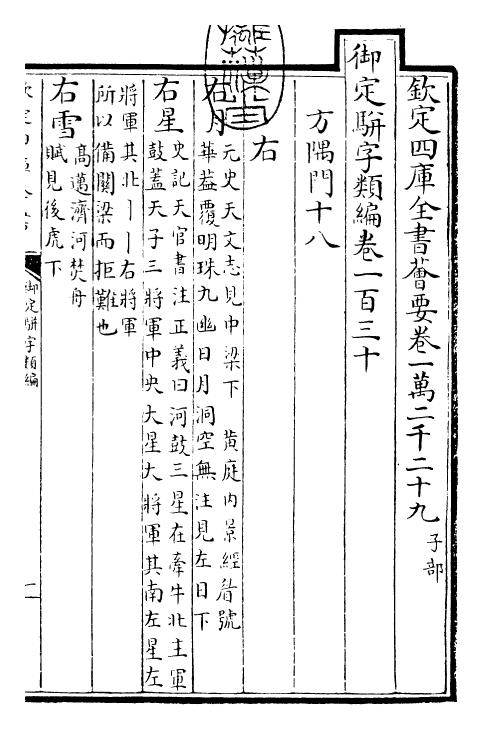 欽定四庫全書薈要卷一萬二千二十九 子部
御定駢字類編卷一百三十
方隅門十八
右
右月 元史天文志見中梁下 黄庭内景經眉號
華葢覆明珠九幽日月洞空無注見左日下
右星 史記天官書注正義曰河鼓三星在牽牛北主軍
鼓蓋天子三將軍中央大星大將軍其南左星左
將軍其北丨丨右將軍
所以備關梁而拒難也
右雪 高邁濟河焚舟
賦見後虎下
御定駢字類編